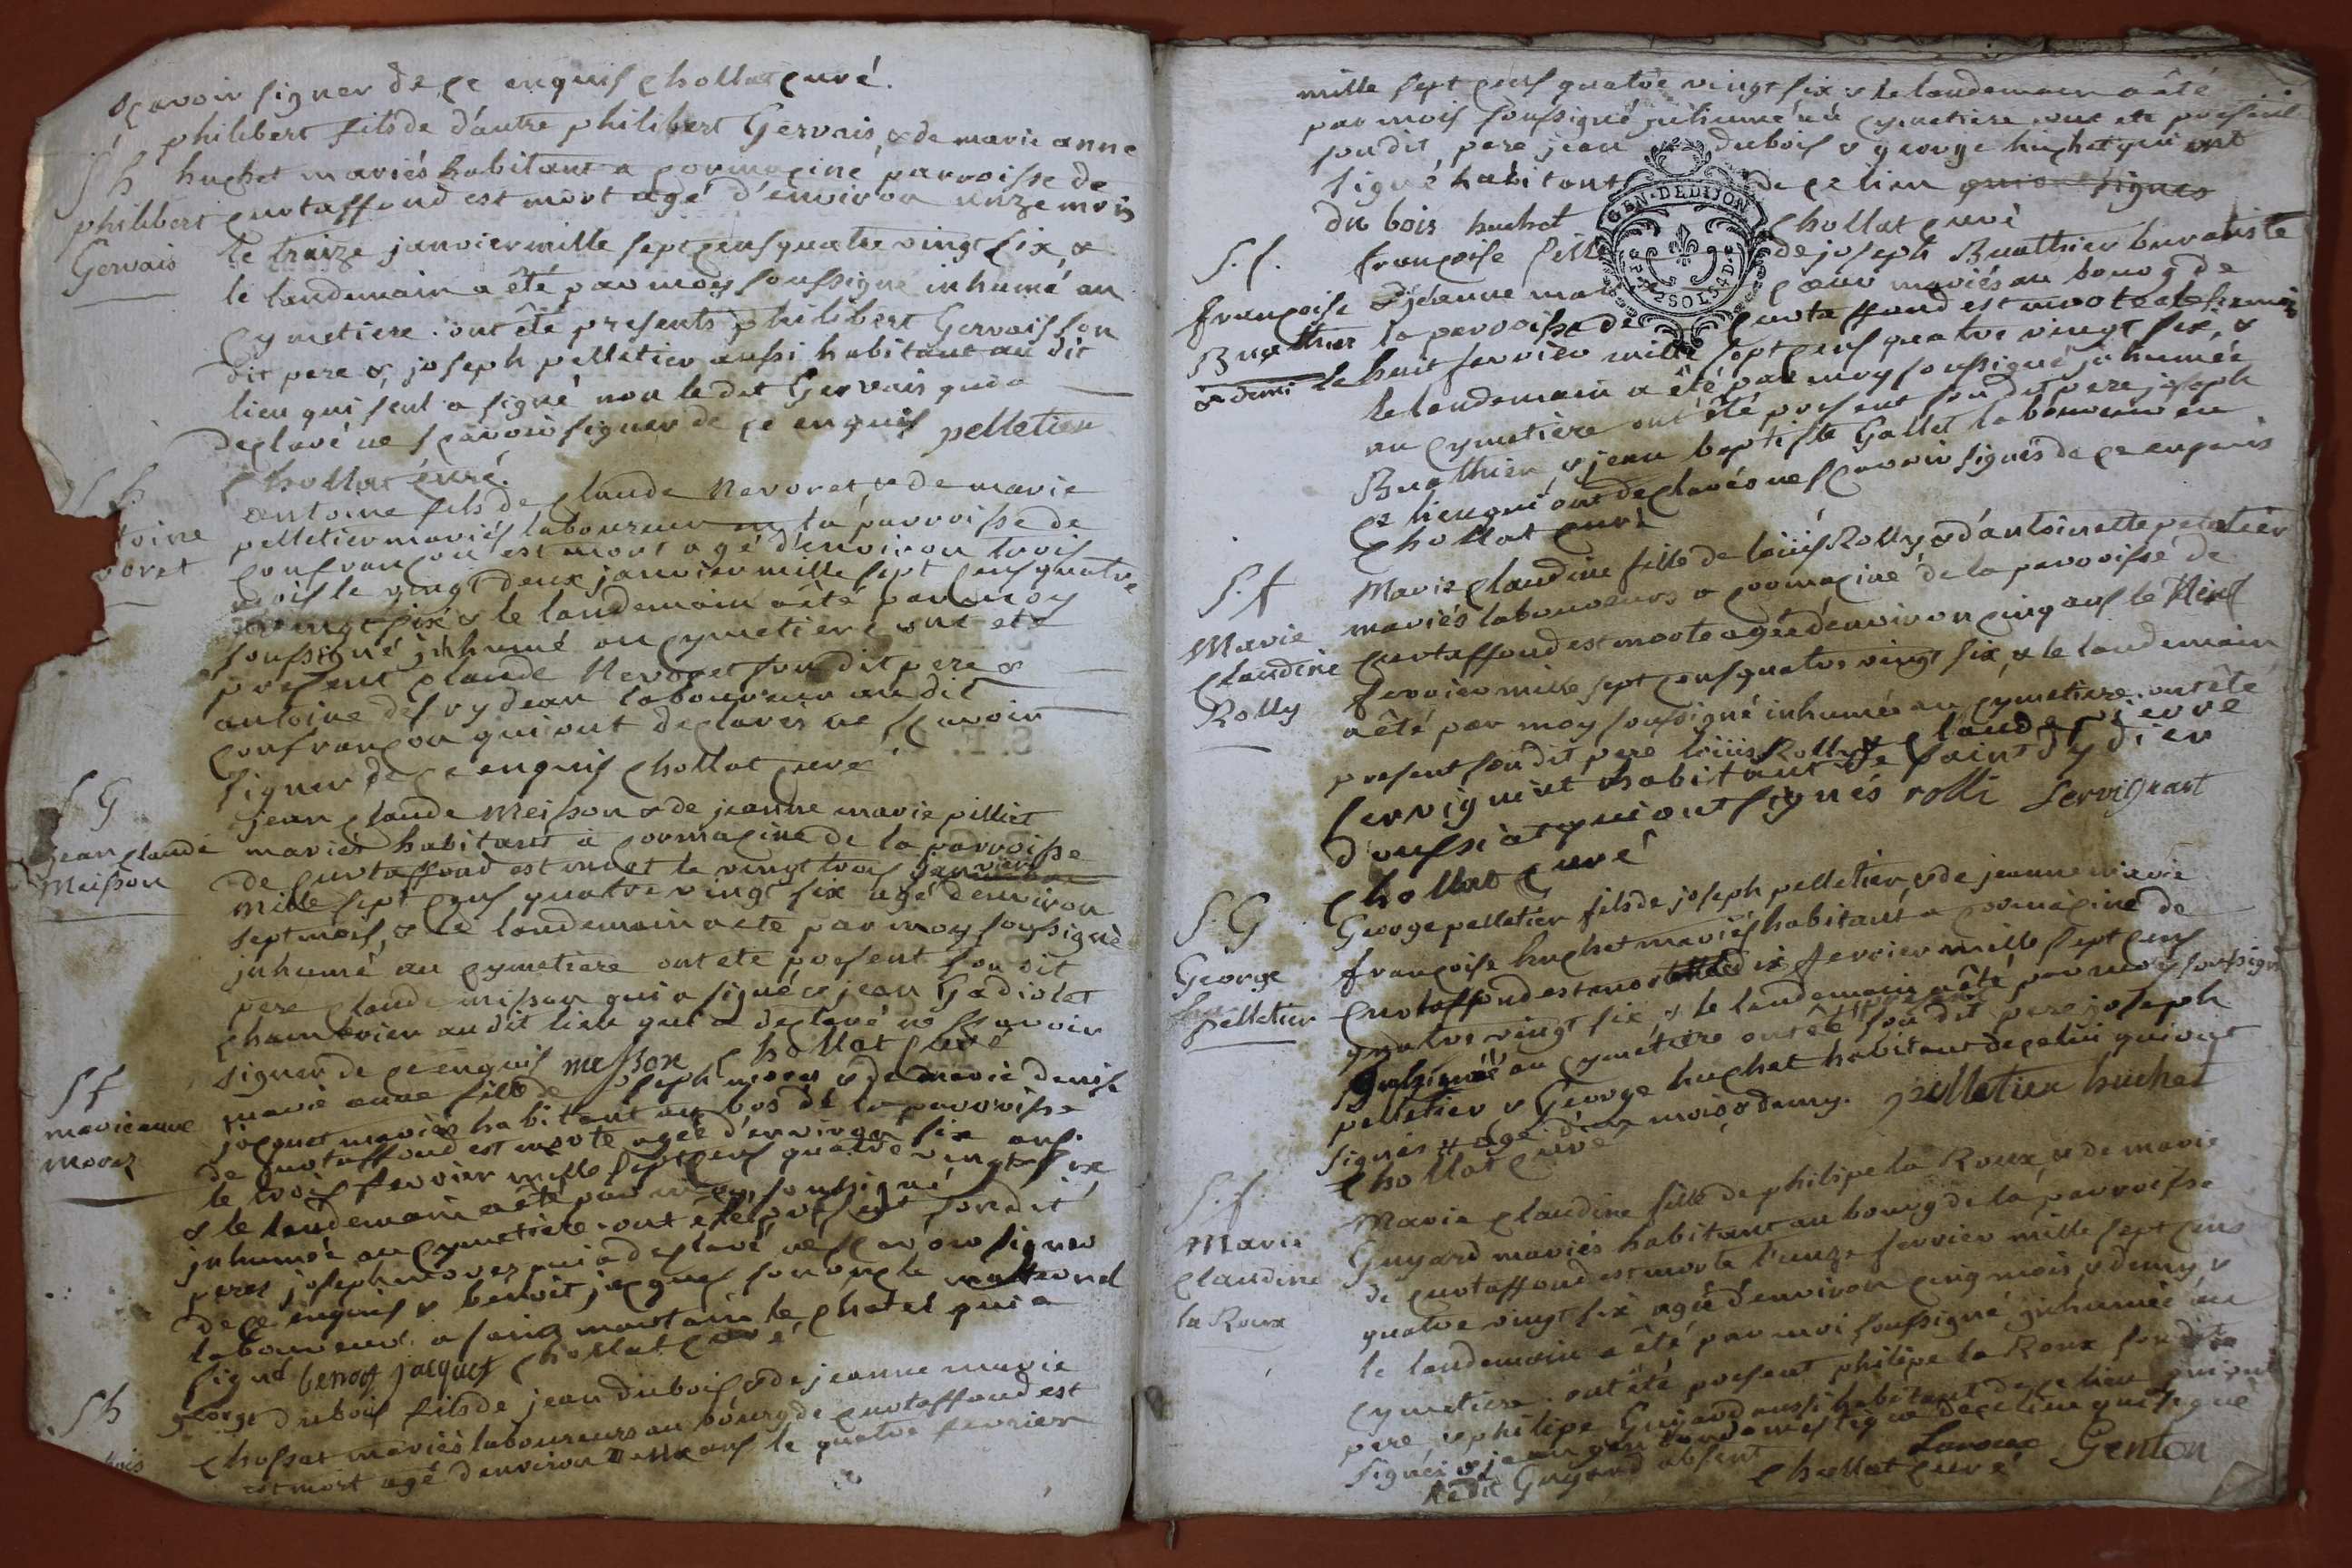 Sçavoir signer de ce enquis Chollat Curé.
philibert fils de d'autre philibert Gervais, & de marie anne
S h
huchet mariés habitant a Cormaciné parroisse de
philibert
Gervais
Curtaffond est mort agé d'environ unze mois
le traize janvier mille sept cens quatre vingt six, &
le landemain a êté par moy soussigné inhumé au
Cymetiere. ont êté presents philibert Gervais son
dit pere & joseph pelletier aussi habitant au dit
lieu qui seul a signé non le dit Gervais qui a
declaré ne sçavoir signer de ce enquis pelletier
Chollat Curé.
S h
toine
voret
antoine fils de Claude Nevoret & de marie
pelletier mariés laboureur en la parroisse de
Confrançon est mort agé d'environ trois
mois le vingt deux janvier mille sept cens quatre
vingt six & le landemain a êté par moy
soussigné inhumé au Cymetiere ont eté
present Claude Nevoret son dit pere &
antoine desrydean laboureur au dit
Confrançon qui ont declarés ne sçavoir
signer de ce enquis Chollat Curé
S G
jean Claude
Meisson
jean Claude Meisson & de jeanne marie pilliet
mariés habitant à Cormacine de la parroisse
de Curtaffond est mort le vingt trois janvier
mille sept cens quatre vingt six agé denviron
sept mois, & le landemain a eté par moy soussigné
inhumé au Cymetiere ont ete present son dit
pere Claude misson qui a signé & jean Gadiolet
Chambrier au dit lieu qui a declaré ne sçavoir
signer de ce enquis messon Chollat Curé
S f
marie anne
morez
marie anne fille de joseph morez & de marie denise
jacquet mariés habitant au bos de la parroisse
de Curtaffond est morte agée d'environ six ans
le trois fevrier mille sept cens quatre vingt six
& le landemain a êté par moy soussigné
inhumée au Cymetiere. ont êté present son dit
pere joseph morez qui a declaré ne sçavoir signer
de ce enquis & benoit jacques son oncle
laboureur a saint martin le chatel qui a
signé benoit jacquet Chollat Curé
S h
ois
george dubois fils de jean dubois & de jeanne marie
Chossat mariés laboureurs au bourg de Curtaffond est
mort agé d'environ deux ans le quatre fevrier
mille sept cens quatre vingt six & le landemain a êté
par mois soussigné inhumé au Cymetiere ont ete present
son dit pere jean dubois & george huchet qui ont
signé habitant de ce lieu qui ont signes
du bois huchet Chollat Curé
GEN. DE DIJON
2 SOLS 4 D.
S. f.
françoise
Buathier
& demi
françoise fille de joseph Buathier buraliste
& jeanne mar Coeur mariés au bourg de
la parroisse de Curtaffond est morte
le huit fevrier mille sept cens quatre vingt six, &
le landemain a êté par moy soussigné inhumée
au Cymetiere ont êté present son dit pere joseph
Buathier & jean baptiste Gallet laboureur en
ce lieu qui ont declarés ne sçavoir signés de ce enquis
Chollat Curé
S. f
Marie
Claudine
Rolly
Marie Claudine fille de loüis Rolly & d'antoinette peletier
mariés laboureurs a Cormaciné de la parroisse de
Curtaffond est morte agée d'environ cinq ans le Neuf
fevrier mille sept cens quatre vingt six, & le landemain
a êté par moy soussigné inhumée au Cymetiere. ont êté
present son dit pere loüis Rolly & Claude pierre
Servignint habitant de saint dydier
d'aussiat qui ont signés rolli Servignat
Chollat Curé
S. G
George
pelletier
George pelletier fils de joseph pelletier, & de jeanne marie
françoise huchet mariés habitant a Cormacine de
Curtaffond est mort le dix fevrier mille sept cens
quatre vingt six & le landemain a êté par moy soussigné
inhumé au Cymetiere ont êté present son dit pere joseph
pelletier & George huchet habitant de ce lieu qui ont
signés # agé d'un mois & demy. pelletier huchet
Chollat Curé
S. f
Marie
Claudine
la Roux
Marie Claudine fille de philipe la Roux, & de marie
Guyard mariés habitant au bourg de la parroisse
de Curtaffond est morte l'unze fevrier mille sept cens
quatre vingt six agée d'environ cinq mois & demy &
le landemain a êté par moi soussigné inhumée au
Cymetiere. ont êté present philipe la Roux son dit
pere & philipe Guyard aussi habitant de ce lieu qui ont
signés & jean genton domestique de ce lieu qui signe
le dit Guyard absent Laroux Genton
Chollat Curé